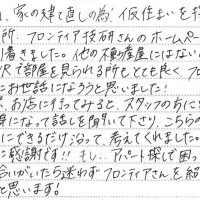 、家の建て直しの為 仮住まいを探
所、フロンティア技研さんのホームペー
着きました。他の不動産屋にはない
沢で部屋を見られる所もとても良く、フロ
にお世話になろうと思いました!
、お店に行ってみると、スタッフの方に
身になって話しを聞いて下さり、こちらの
にできるだけ沿って、考えてくれました。
に感謝です!! もし、アパート探しで困っ
合いがいたら迷わずフロンティアさんを紹
と思います!